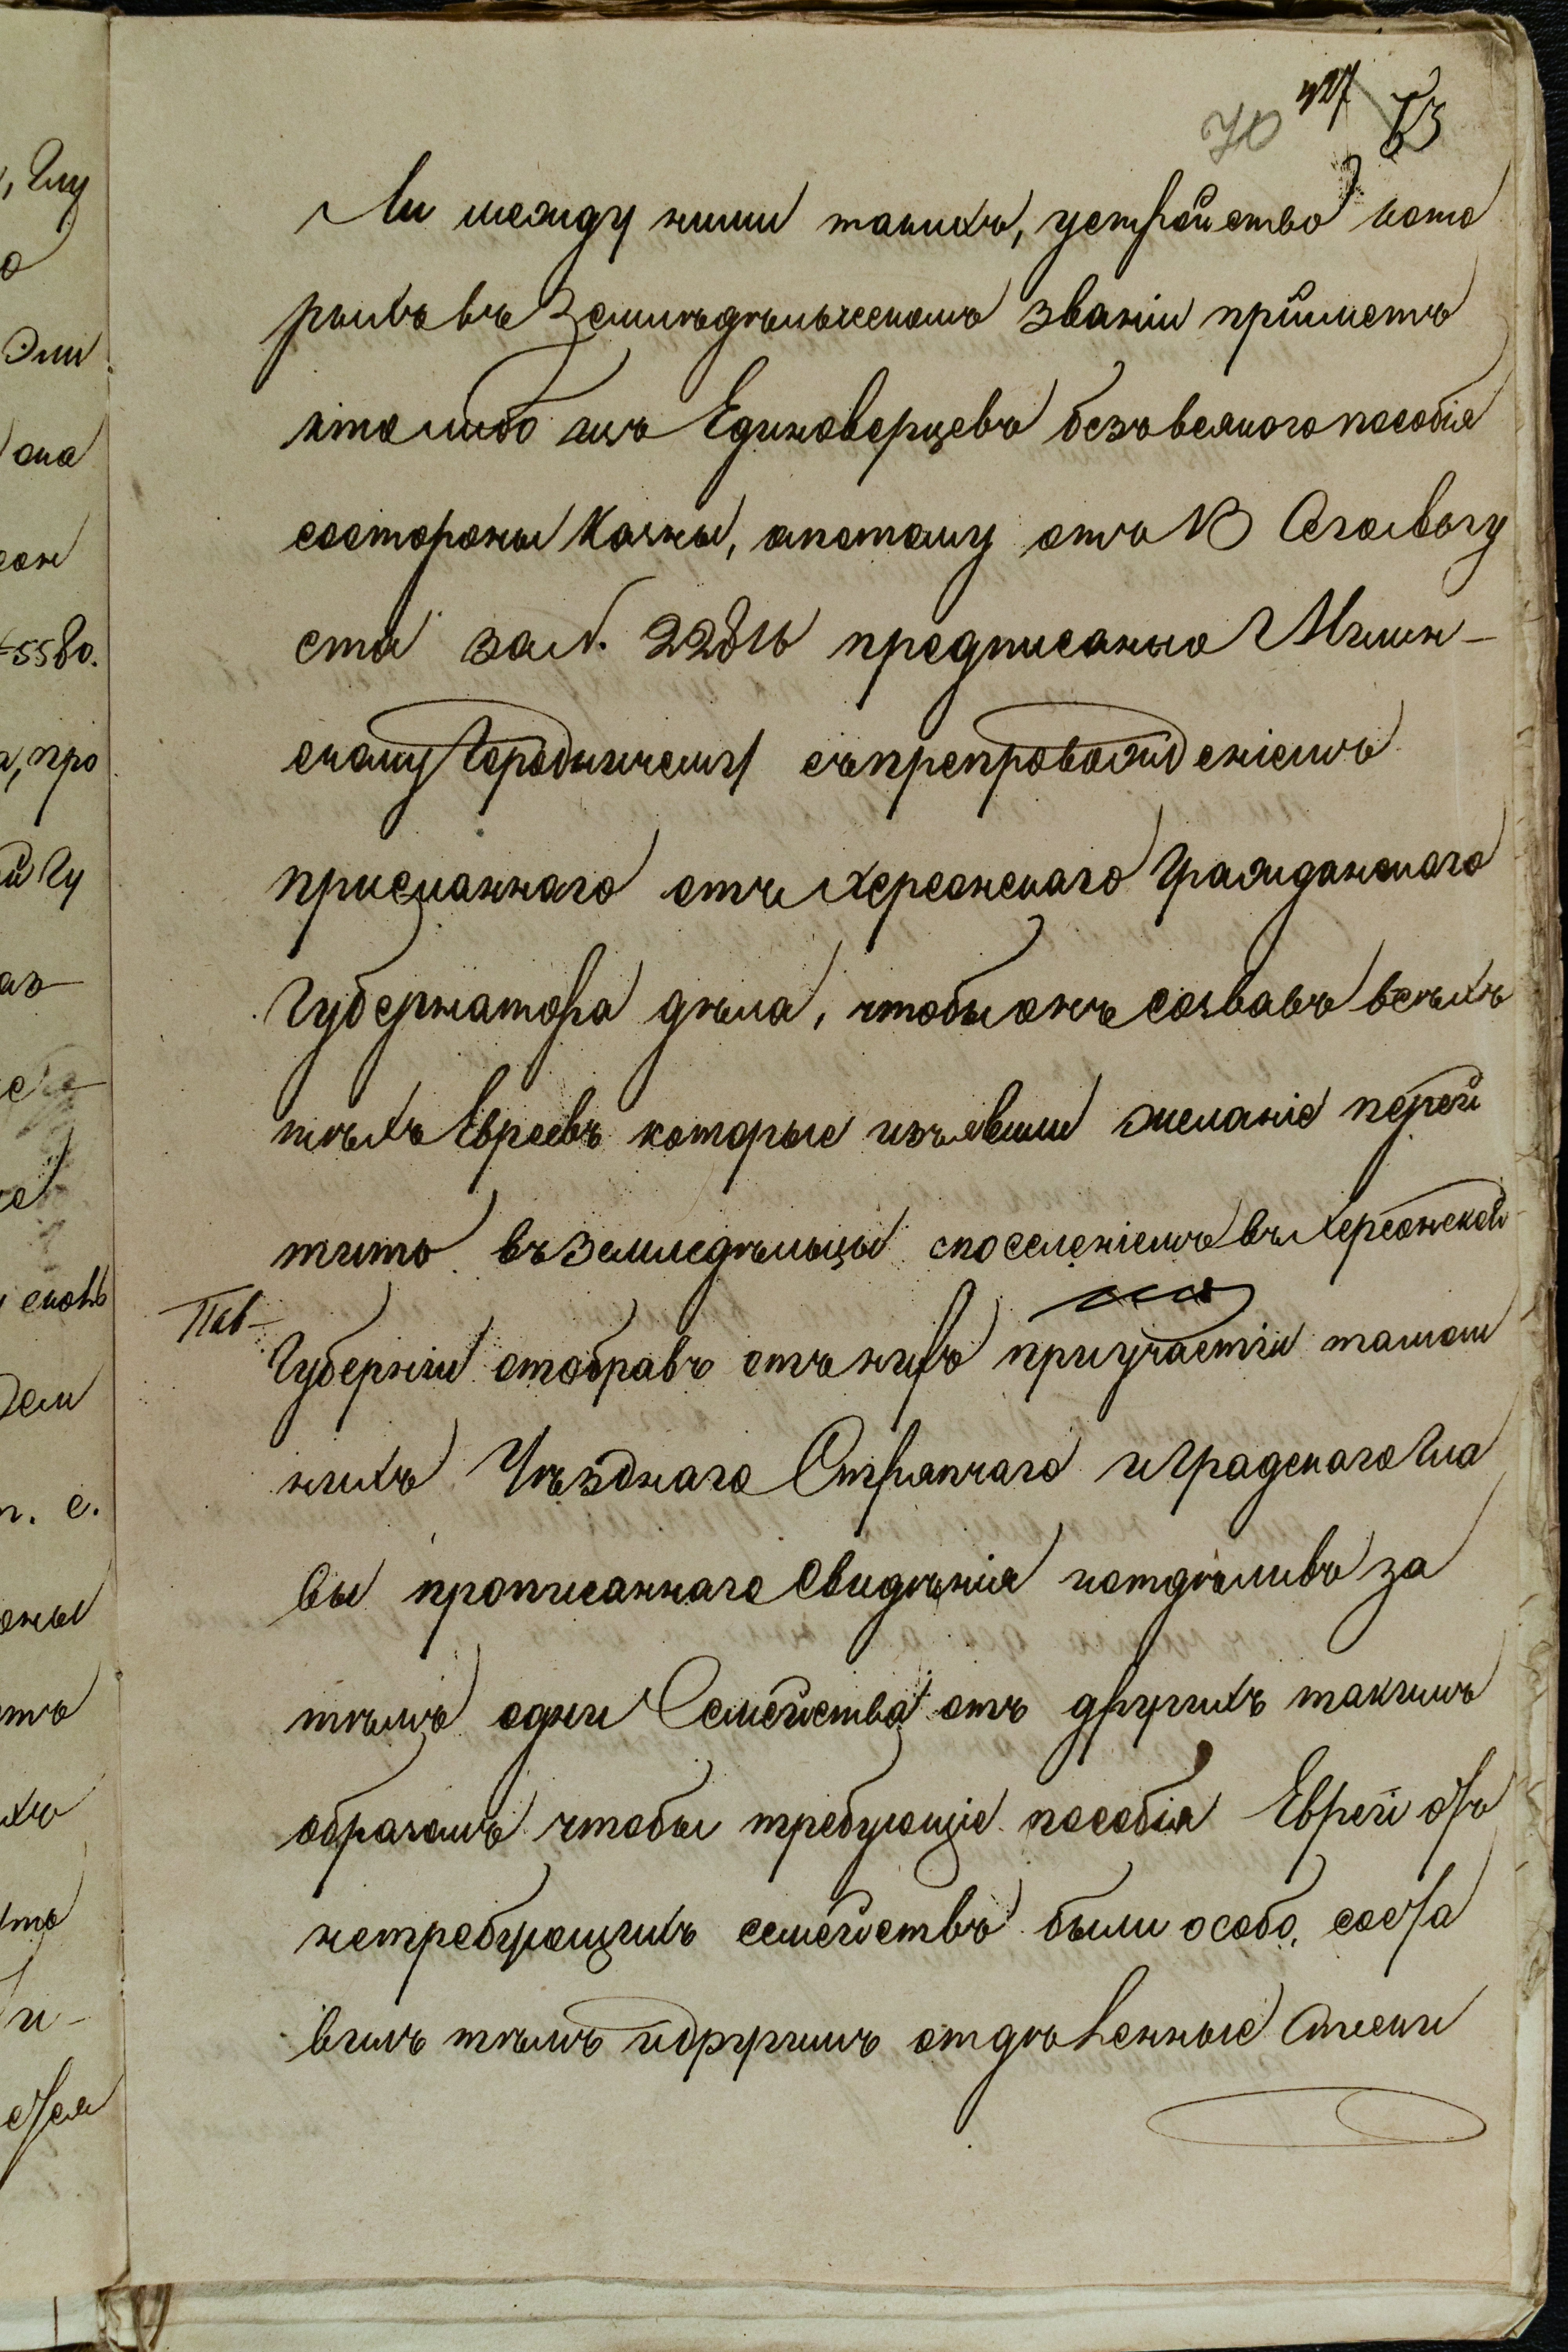 70 427 73
ли между ними такихъ, устройство кото
рыхъ въ Земледѣльческомъ званіи приметъ
кто либо изъ Единоверцевъ безъ всякого пособія
состороны казны, апотому отъ 13 Сего Авгу
ста за №. 22816 предписанно Мглин-
скому Городничему съпрепровожденіемъ
присланнаго отъ Херсонскаго Гражданскаго
Губернатора дѣла, чтобы онъ созвавъ всѣхъ
тѣхъ Евреевъ которые изъявили желаніе перей
тить въ земледѣльцы споселеніемъ въ Херсонской
Губерніи отобравъ отъ нихъ приучастіи тамош
нихъ Уѣзднаго Стряпчаго и Градскаго Гла
вы прописаннаго Свидѣнія иотдѣливъ за
тѣмъ одни Семейства отъ другихъ такимъ
образомъ чтобы требующіе пособія Евреи отъ
нетребующихъ семействъ были особо, соста
вилъ тѣмъ идругимъ отдѣленные Списки